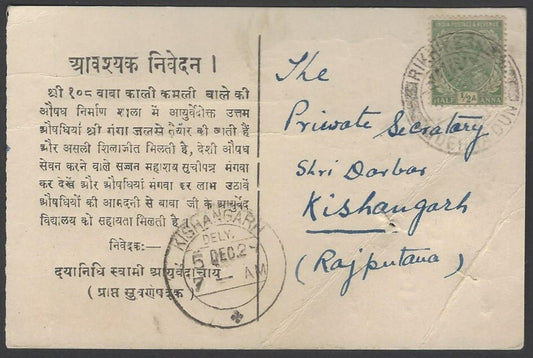 आवश्यक निवेदन ।
श्री १०८ बाबा काली कमली वाले की
औषध निर्माण शाला में आयुर्वेदोक्त उत्तम
औषधियां श्री गंगा जलसे तैयार की जाती हैं
और असली शिलाजीत मिलती है, देशी औषध
सेवन करने वाले सज्जन महाशय सूचीपत्र मंगवा
कर देखें और औषधियां मंगवा कर लाभ उठावें
औषधियों की आमदनी से बाबा जी के आयुर्वेद
विद्यालय को सहायता मिलती है
निवेदकः—
दयानिधि स्वामी आयुर्वेदाचार्य
( प्राप्त सुवर्णपदक )
KISHANGARH
DELY.
5 DEC.2
7 AM
INDIA POSTAGE & REVENUE
HALF ½A ANNA
DEHRA DUN
The
Priwate Secratary
Shri Darbar
Kishangarh
(Rajputana)